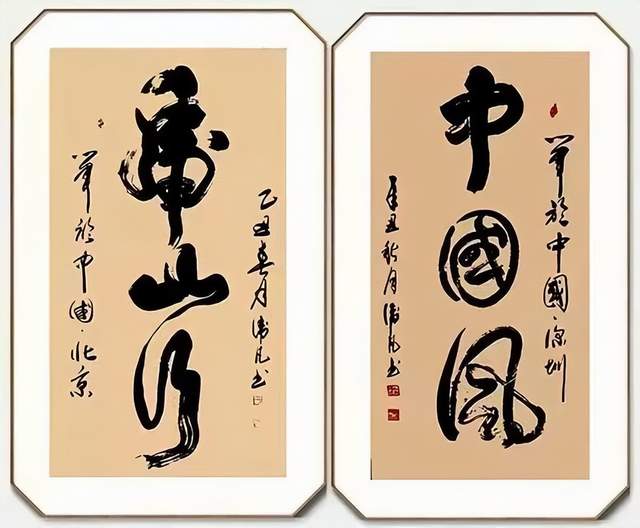 虎山行
乙丑春月凡书
筆於中國·北京
中國風
筆於中國·深圳
辛丑秋月凡书